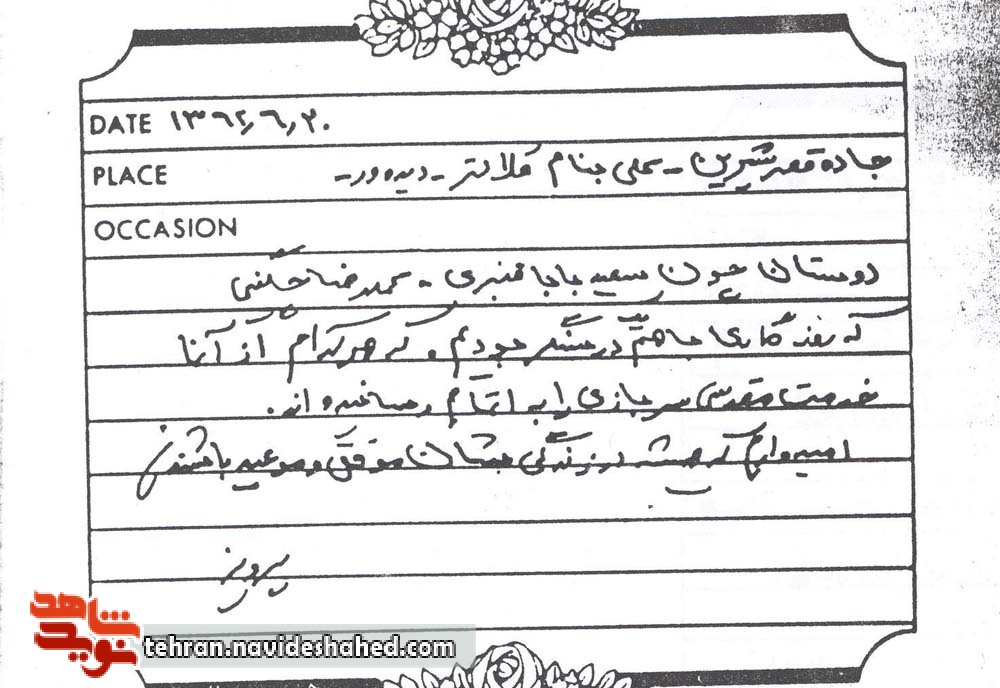 DATE ۱۳۶۲,۶,۲۰
PLACE جاده قصر شیرین - محلی بنام کلانتر - دیده‌ور -
OCCASION
دوستان چون سعید باباقنبری - محمدرضا
که در سنگر بودیم و که هر کدام از آنا
خدمت مقدس سربازی را به اتمام رسانده‌اند.
امیدوارم که همیشه در زندگی موفق و موئید باشند
پرویز
نوید شاهد
tehran.navideshahed.com